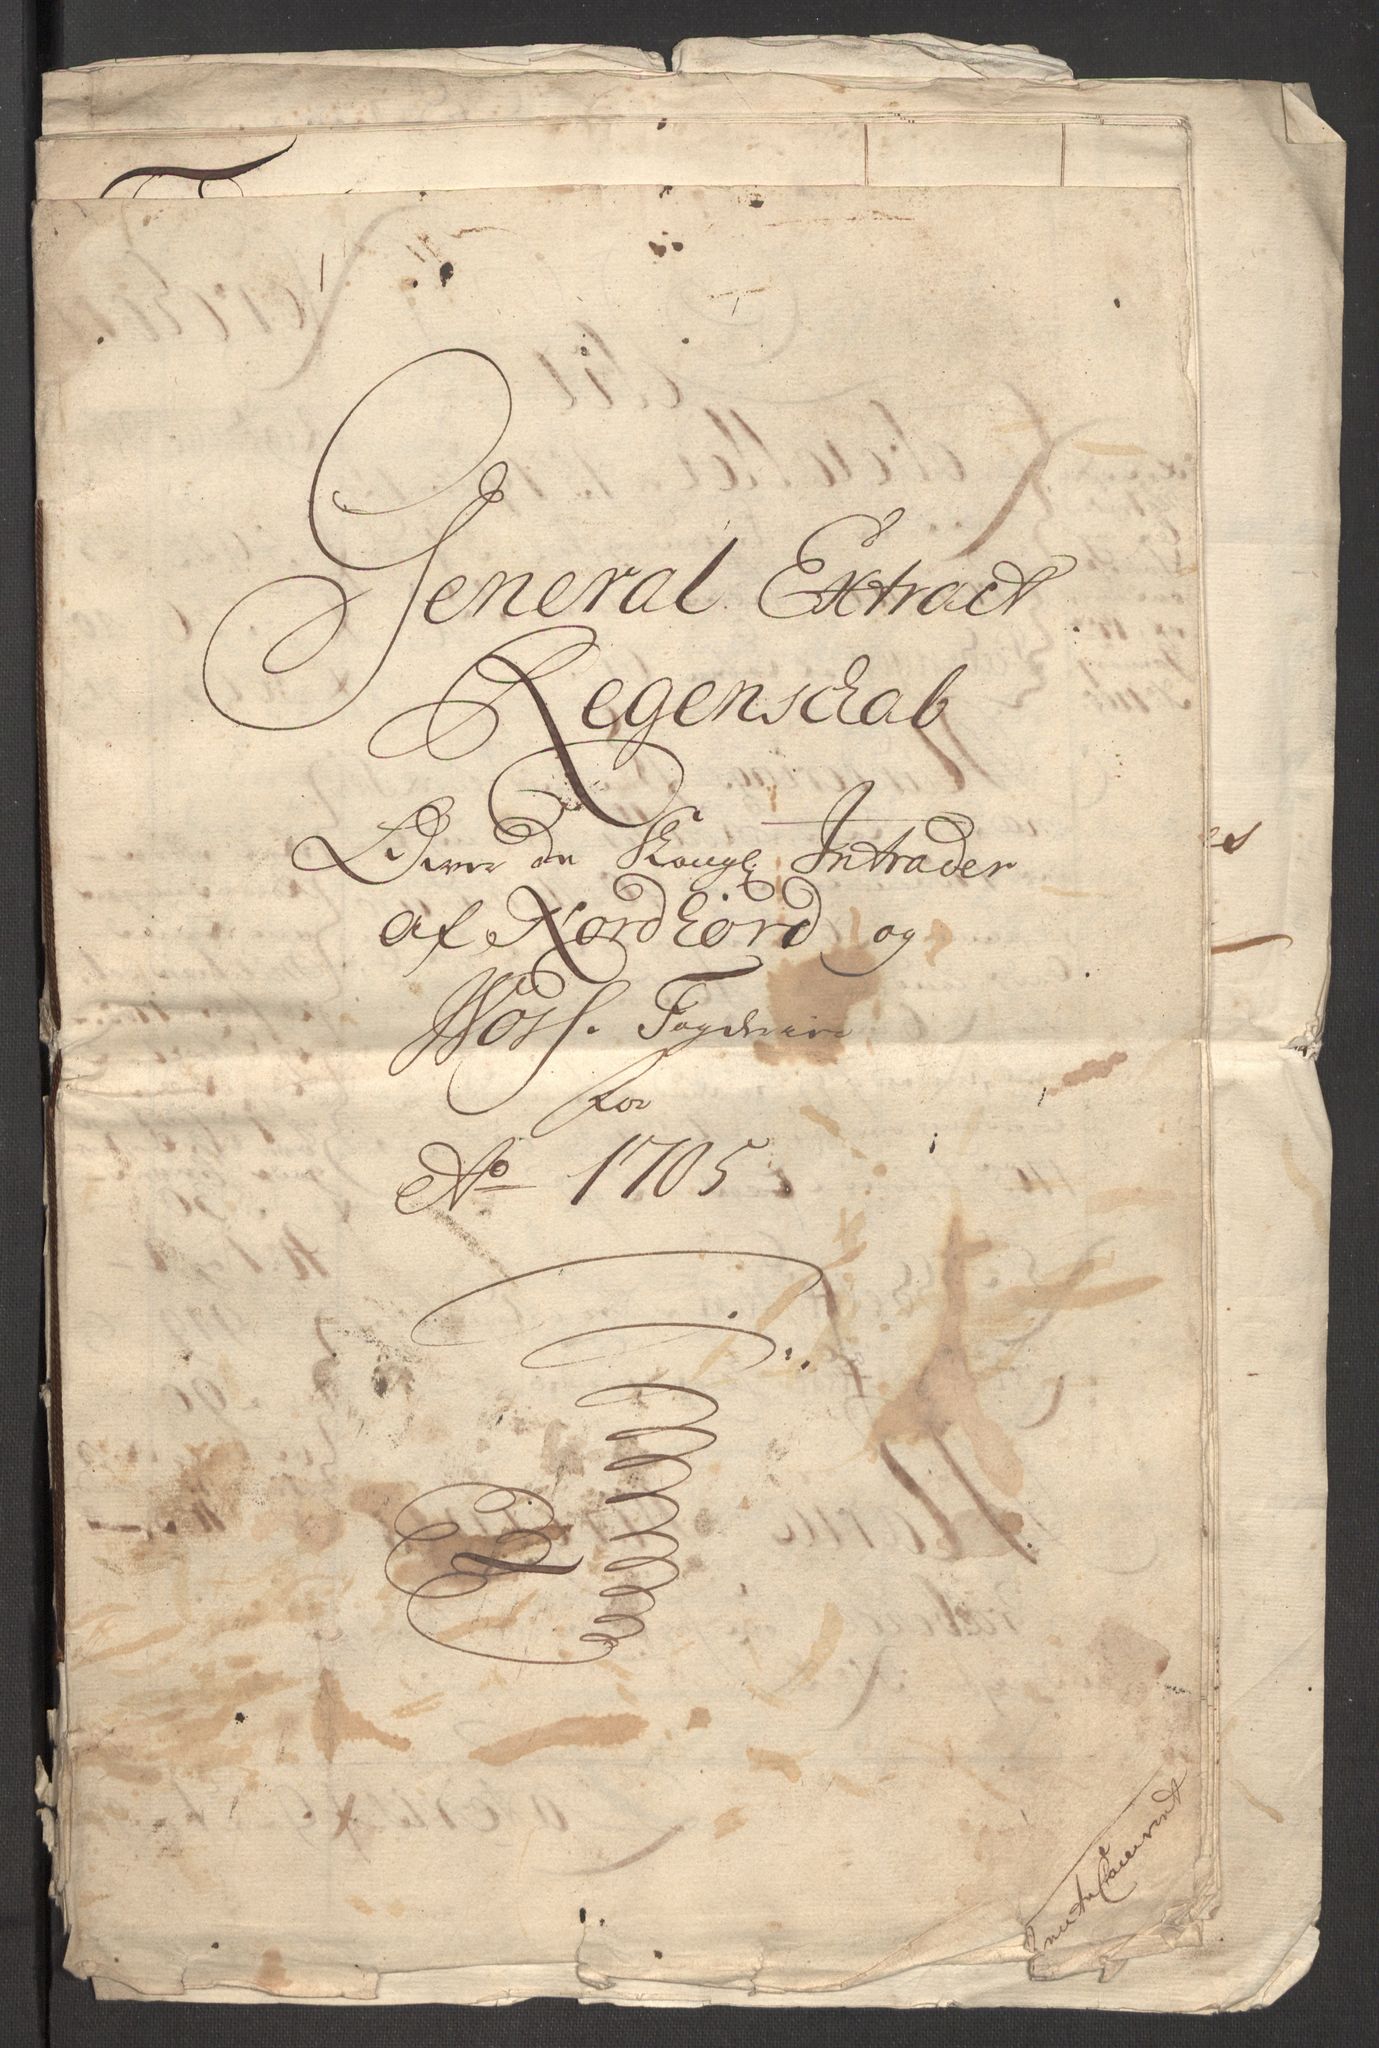 General Extract
Regenschab
Ofver de Kongl: Intrader
af Nordhord og
Woss. Fogderie
for
Ao 1705